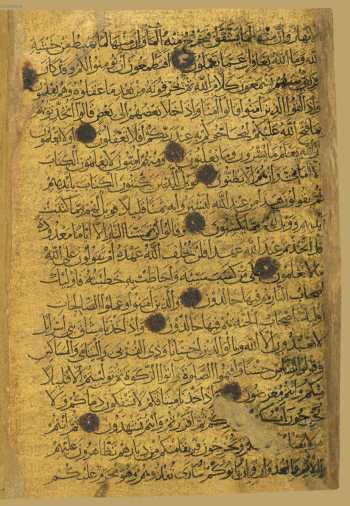 الانهار وان منها لما يشقق فيخرج منه الماء وان منها لما يهبط من خشية
الله وما الله بغافل عما تعملون افتطمعون ان يؤمنوا لكم وقد كان
فريق منهم يسمعون كلام الله ثم يحرفونه من بعد ما عقلوه وهم يعلمون
واذا لقوا الذين امنوا قالوا امنا واذا خلا بعضهم الى بعض قالوا اتحدثونهم
بما فتح الله عليكم ليحاجوكم به عند ربكم افلا تعقلون اولا يعلمون
ان الله يعلم ما يسرون وما يعلنون ومنهم اميون لا يعلمون الكتاب
الا اماني وان هم الا يظنون فويل للذين يكتبون الكتاب بايديهم
ثم يقولون هذا من عند الله ليشتروا به ثمنا قليلا فويل لهم مما كتبت
ايديهم وويل لهم مما يكسبون وقالوا لن تمسنا النار الا اياما معدودة
قل اتخذتم عند الله عهدا فلن يخلف الله عهده ام تقولون على الله
ما لا تعلمون بلى من كسب سيئة واحاطت به خطيئته فاولئك
اصحاب النار هم فيها خالدون والذين امنوا وعملوا الصالحات
اولئك اصحاب الجنة هم فيها خالدون واذ اخذنا ميثاق بني اسرائيل
لا تعبدون الا الله وبالوالدين احسانا وذي القربى واليتامى والمساكين
وقولوا للناس حسنا واقيموا الصلوة واتوا الزكوة ثم توليتم الا قليلا
منكم وانتم معرضون واذ اخذنا ميثاقكم لا تسفكون دماءكم ولا
تخرجون انفسكم ثم اقررتم وانتم تشهدون ثم انتم
هؤلاء وتخرجون فريقا منكم من ديارهم تظاهرون عليهم
بالاثم والعدوان وان ياتوكم اسارى تفادوهم وهو محرم عليكم